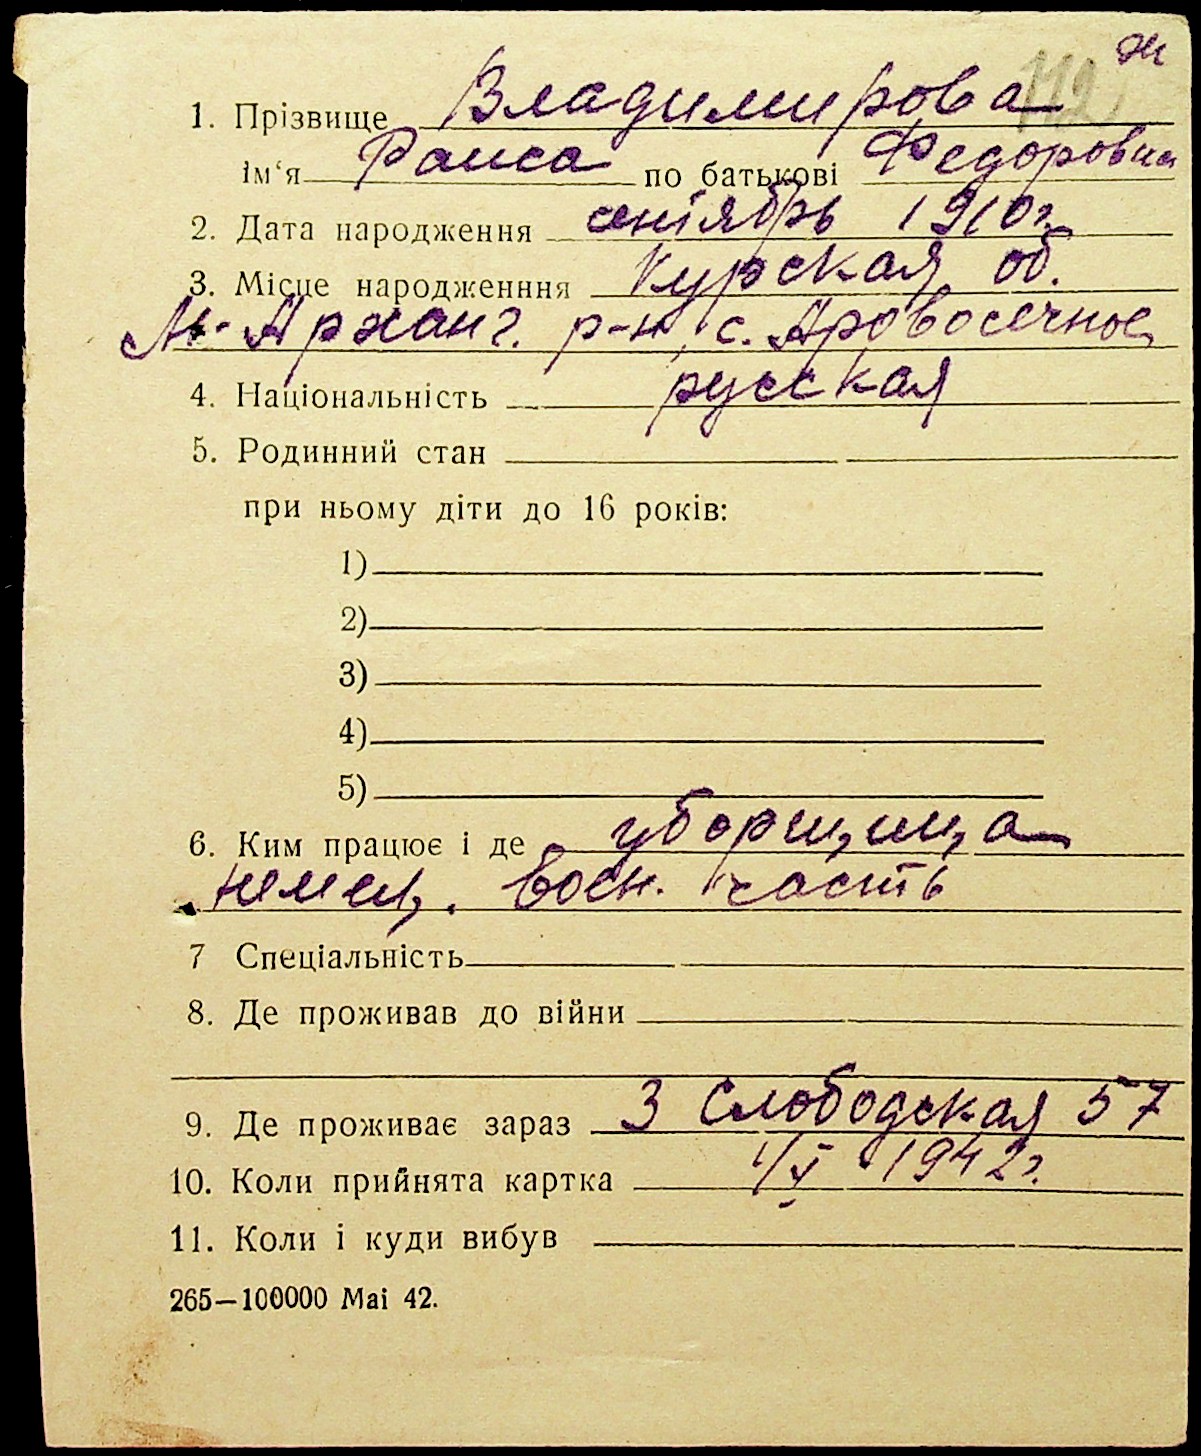 Ж
112
1. Прізвище Владимирова
ім‘я Раиса по батькові Федоровна
2. Дата народження сентябрь 1910 г.
3. Місце народженння Курская об.
М-Арханг. р-н, с. Дровосечное
4. Національність русская
5. Родинний стан
при ньому діти до 16 років:
1)
2)
3)
4)
5)
6. Ким працює і де уборщица
немец. воен. часть
7 Спеціальність
8. Де проживав до війни
9. Де проживає зараз 3 Слободская 57
10. Коли прийнята картка 1/X 1942 г.
11. Коли і куди вибув
265—100000 Mai 42.